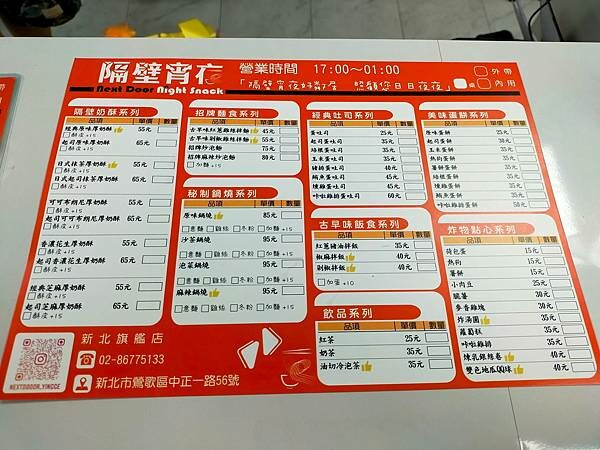 隔壁宵夜
Next Door Night Snack
營業時間 17:00~01:00
「隔壁宵夜好鄰居 照顧您日日夜夜」
外帶
內用
桌
隔壁奶酥系列
品項 單價 數量
經典原味厚奶酥 55元
酥皮+15
起司原味厚奶酥 65元
酥皮+15
日式抹茶厚奶酥 55元
日式起司抹茶厚奶酥 65元
酥皮+15
可可布朗尼厚奶酥 55元
起司可可布朗尼厚奶酥 65元
酥皮+15
香濃花生厚奶酥 55元
起司香濃花生厚奶酥 65元
酥皮+15
經典芝麻厚奶酥 55元
酥皮+15
起司芝麻厚奶酥 65元
酥皮+15
招牌麵食系列
品項 單價 數量
古早味紅蔥雞絲拌麵 45元
古早味剝椒雞絲拌麵 45元
招牌炒泡麵 75元
招牌麻辣炒泡麵 80元
加麵+15
秘制鍋燒系列
品項 單價 數量
原味鍋燒 85元
意麵 雞絲 冬粉 加麵+15
沙茶鍋燒 95元
意麵 雞絲 冬粉 加麵+15
泡菜鍋燒 95元
意麵 雞絲 冬粉 加麵+15
麻辣鍋燒 95元
意麵 雞絲 冬粉 加麵+15
經典吐司系列
品項 單價 數量
蛋吐司 25元
起司蛋吐司 35元
培根蛋吐司 35元
玉米蛋吐司 35元
豬排蛋吐司 40元
鮪魚蛋吐司 40元
燻雞蛋吐司 45元
咔啦雞排蛋吐司 60元
古早味飯食系列
品項 單價 數量
紅蔥豬油拌飯 35元
椒麻拌飯 40元
剝椒拌飯 40元
加蛋+10
飲品系列
品項 單價 數量
紅茶 25元
奶茶 35元
油切冷泡茶 35元
美味蛋餅系列
品項 單價 數量
原味蛋餅 25元
起司蛋餅 30元
玉米蛋餅 30元
熱狗蛋餅 30元
薯餅蛋餅 35元
培根蛋餅 35元
燻雞蛋餅 35元
鮪魚蛋餅 35元
咔啦雞蛋餅 50元
炸物點心系列
品項 單價 數量
荷包蛋 15元
熱狗 15元
薯餅 15元
小肉豆 25元
脆薯 30元
麥香雞塊 30元
炸湯圓 35元
蘿蔔糕 35元
咔啦雞排 35元
煉乳銀絲卷 40元
雙色地瓜QQ球 40元
新北旗艦店
02-86775133
新北市鶯歌區中正一路56號
NEXTDOOR.YINGGE